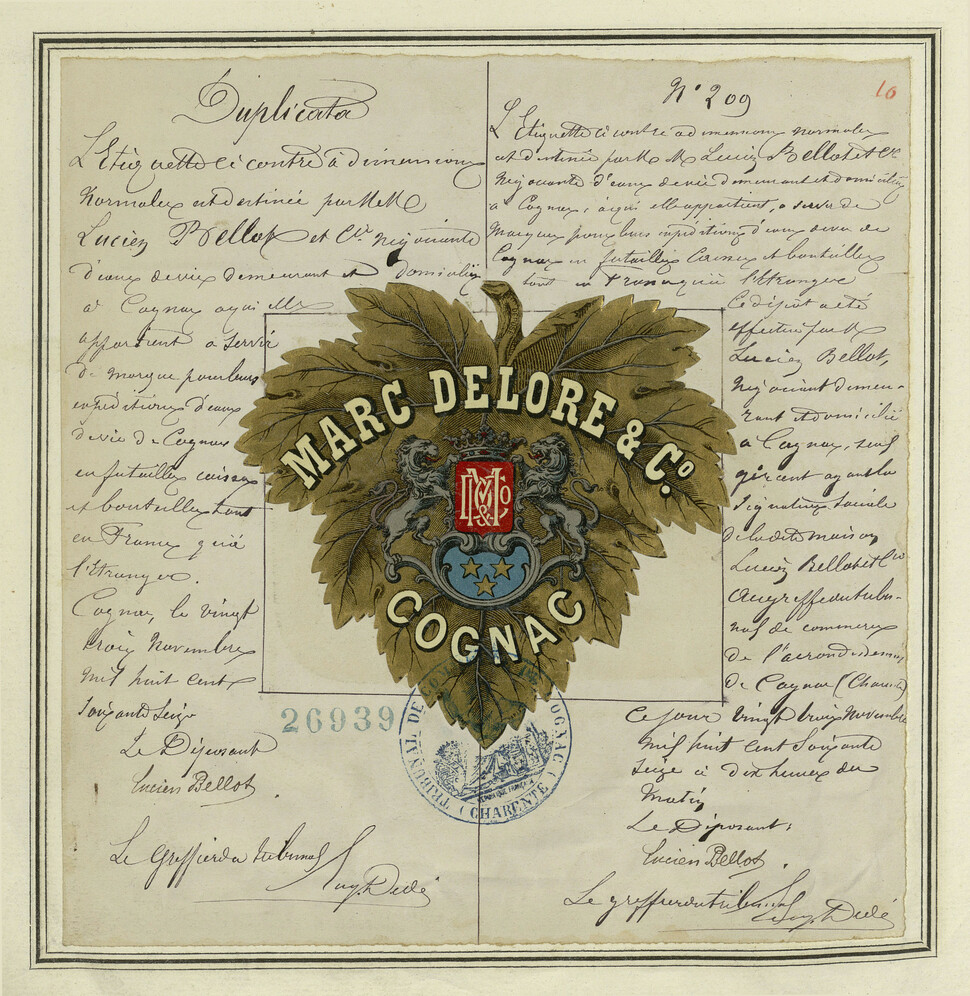 Duplicata
L'Etiquette ci contre à dimensions
Normales est destinée par M M
Lucien Bellot et Cie Négociants
d'eaux de vie demeurant et domiciliés
à Cognac à qui elle
appartient à servir
de marque pour leurs
expéditions d'eaux
de vie de Cognac
en futailles caisses
et bouteilles tant
en France qu'à
l'Etranger.
Cognac, le vingt
trois Novembre
mil huit cent
soixante seize
Le Déposant
Lucien Bellot.
Le Greffier du tribunal
N° 209
10
L'Etiquette ci contre à dimensions normales
est destinée par M M Lucien Bellot et Cie
Négociants d'eaux de vie demeurant et domiciliés
à Cognac, à qui elle appartient, à servir de
Marque pour leurs expéditions d'eaux de vie de
Cognac en futailles caisses et bouteilles
tant en France qu'à l'Etranger
Ce dépôt a été
effectué par M
Lucien Bellot,
Négociant demeu-
rant et domicilié
à Cognac, seul
gérant ayant la
signature sociale
de la dite maison
Lucien Bellot et Cie
Au greffe du tribu-
nal de commerce
de l'arrondissement
de Cognac (Charente)
Ce jour vingt trois Novembre
mil huit cent soixante
seize à dix heures du
Matin
Le Déposant,
Lucien Bellot.
Le greffier du tribunal
MARC DELORE & Co.
MD&Co
COGNAC
26939
TRIBUNAL DE COMMERCE DE COGNAC
(CHARENTE)
RÉPUBLIQUE FRANÇAISE